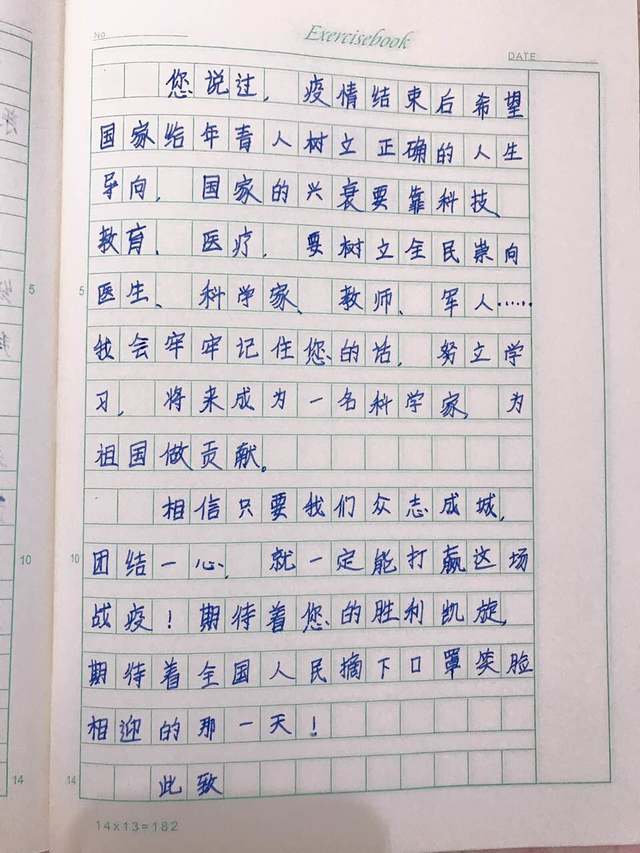 No
Exercisebook
DATE
您说过，疫情结束后希望
国家给年青人树立正确的人生
导向，国家的兴衰要靠科技、
教育、医疗，要树立全民崇向
医生、科学家、教师、军人……
我会牢牢记住您的话，努立学
习，将来成为一名科学家，为
祖国做贡献。
相信只要我们众志成城，
团结一心，就一定能打赢这场
战疫！期待着您的胜利凯旋，
期待着全国人民摘下口罩笑脸
相迎的那一天！
此致
5
5
10
10
14
14
14×13=182